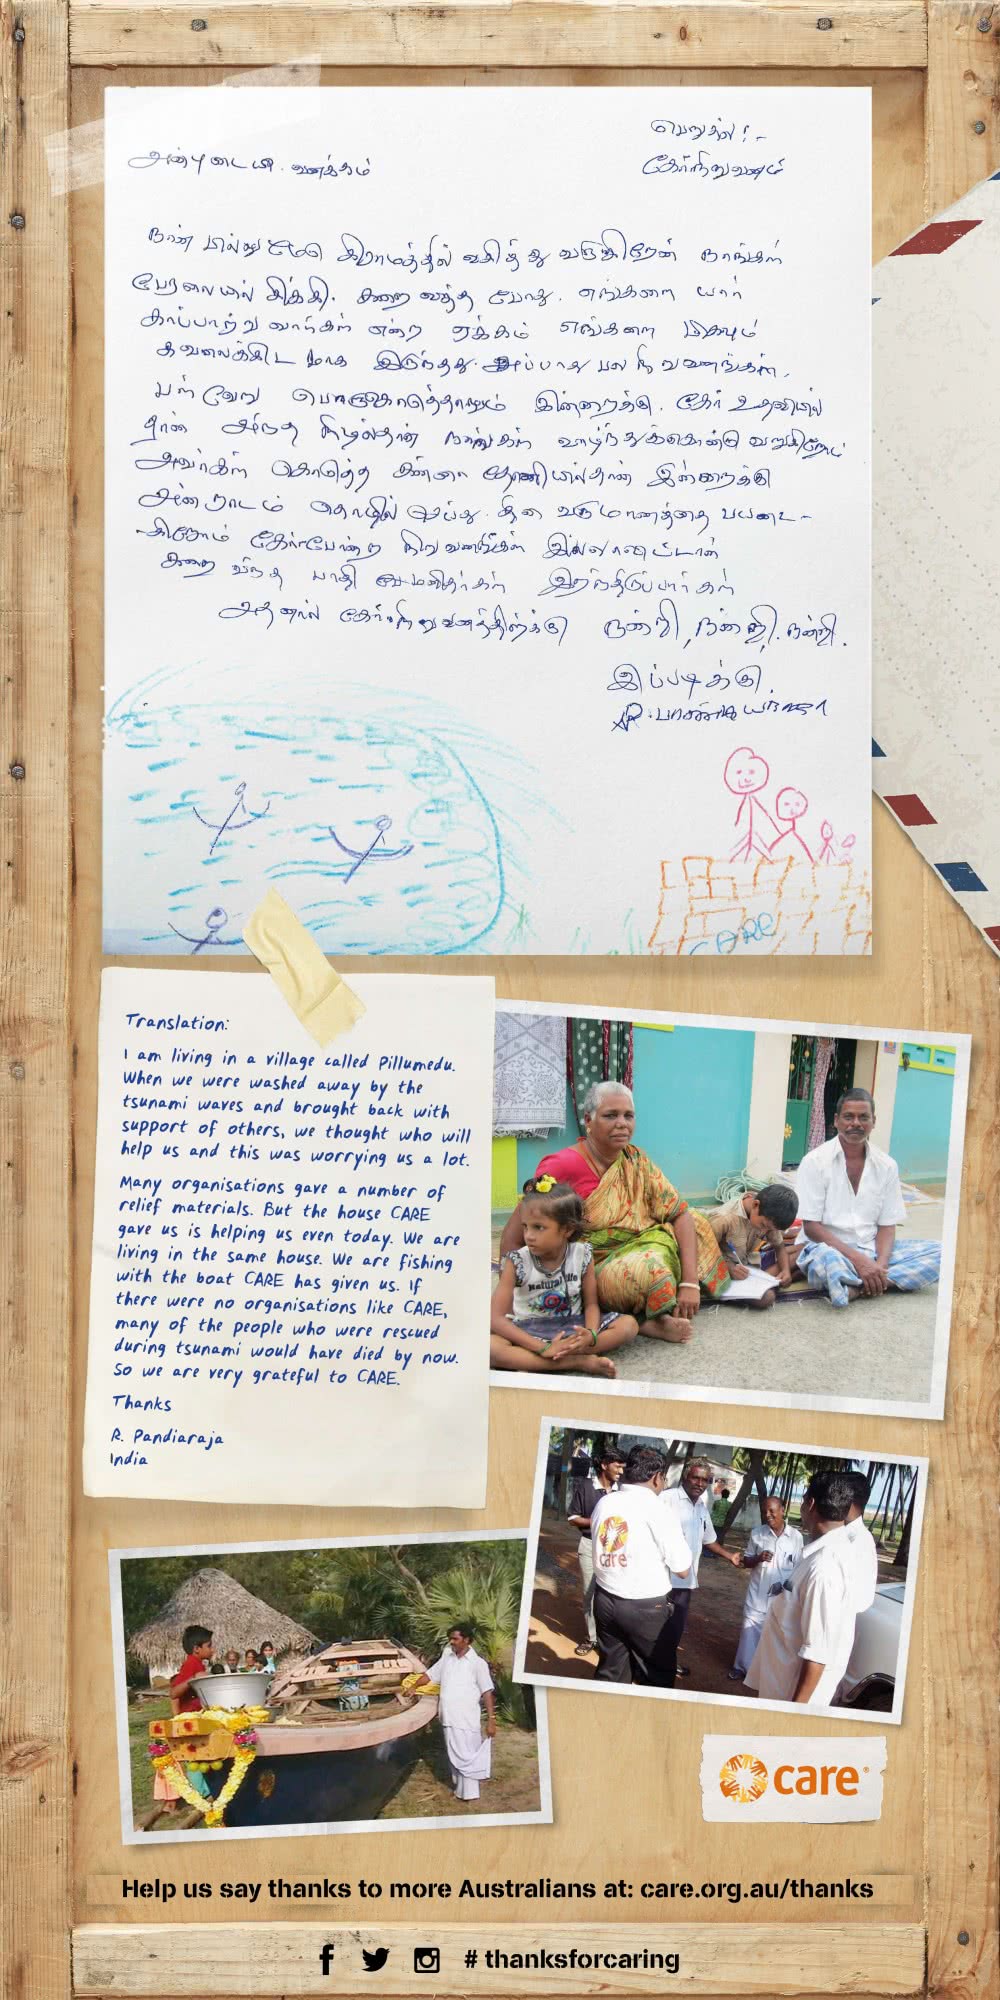 பெறுதல்!-
அன்புடையீர். வணக்கம்
கேர்நிறுவனம்
நான் பில்லுமேடு கிராமத்தில் வசித்து வருகிறேன் நாங்கள்
பேரலையில் சிக்கி. கரை வந்த போது. எங்களை யார்
காப்பாற்றுவார்கள் என்ற ஏக்கம் எங்களை மிகவும்
கவலைக்கிடமாக இருந்தது. அப்போது பல நிறுவனங்கள்.
பல்வேறு இன்றைக்கு. கேர் உதவியில்
தான் அந்த நிழல்தான் நாங்கள் வாழ்ந்துக்கொண்டு வருகிறோம்
அவர்கள் கொடுத்த தோணியில்தான் இன்றைக்கு
அன்றாடம் தொழில் செய்து. தின வருமானத்தை பயனடை-
-கிறோம் கேர்போன்ற நிறுவனங்கள் இல்லாவிட்டால்
கரை வந்த பாதி மனிதர்கள் இறந்திருப்பார்கள்
அதனால் கேர்நிறுவனத்திற்க்கு நன்றி, நன்றி, நன்றி.
இப்படிக்கு.
CARE
Translation:
I am living in a village called Pillumedu.
When we were washed away by the
tsunami waves and brought back with
support of others, we thought who will
help us and this was worrying us a lot.
Many organisations gave a number of
relief materials. But the house CARE
gave us is helping us even today. We are
living in the same house. We are fishing
with the boat CARE has given us. If
there were no organisations like CARE,
many of the people who were rescued
during tsunami would have died by now.
So we are very grateful to CARE.
Thanks
R. Pandiaraja
India
Natural life
care
care®
Help us say thanks to more Australians at: care.org.au/thanks
# thanksforcaring